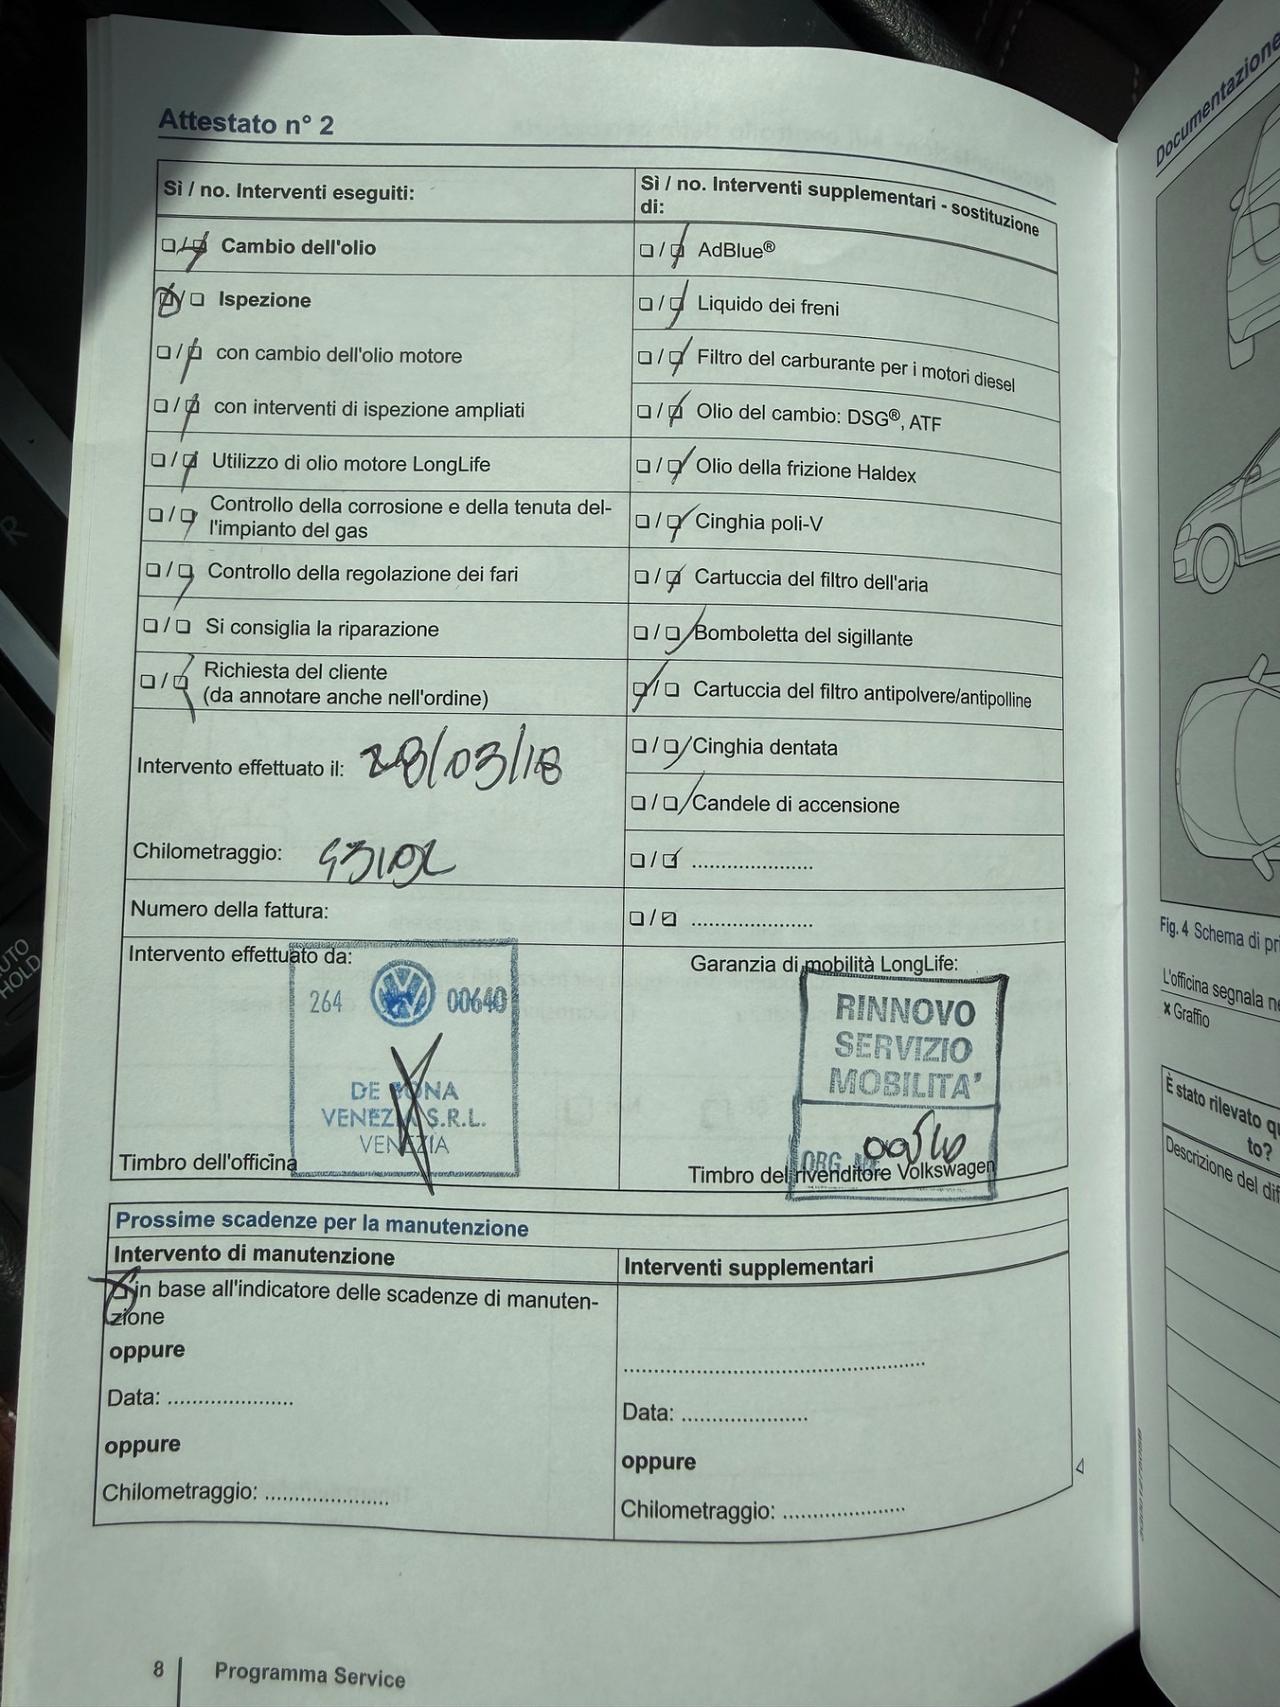 Attestato n° 2
Sì / no. Interventi eseguiti:
Cambio dell'olio
Ispezione
con cambio dell'olio motore
con interventi di ispezione ampliati
Utilizzo di olio motore LongLife
Controllo della corrosione e della tenuta del-
l'impianto del gas
Controllo della regolazione dei fari
Si consiglia la riparazione
Richiesta del cliente
(da annotare anche nell'ordine)
Intervento effettuato il: 28/03/18
Chilometraggio:
Numero della fattura:
Intervento effettuato da:
264 00640
DE BONA
VENEZIA S.R.L.
VENEZIA
Timbro dell'officina
Sì / no. Interventi supplementari - sostituzione
di:
AdBlue®
Liquido dei freni
Filtro del carburante per i motori diesel
Olio del cambio: DSG®, ATF
Olio della frizione Haldex
Cinghia poli-V
Cartuccia del filtro dell'aria
Bomboletta del sigillante
Cartuccia del filtro antipolvere/antipolline
Cinghia dentata
Candele di accensione
....................
....................
Garanzia di mobilità LongLife:
RINNOVO
SERVIZIO
MOBILITA'
ORG.
Timbro del rivenditore Volkswagen
Prossime scadenze per la manutenzione
Intervento di manutenzione
in base all'indicatore delle scadenze di manuten-
zione
oppure
Data: .....................
oppure
Chilometraggio: .....................
Interventi supplementari
..................................................
Data: .....................
oppure
Chilometraggio: .....................
8 Programma Service
Documentazione
Fig. 4 Schema di
L'officina segnala
x Graffio
È stato rilevato
to?
Descrizione del
AUTO
HOLD
R